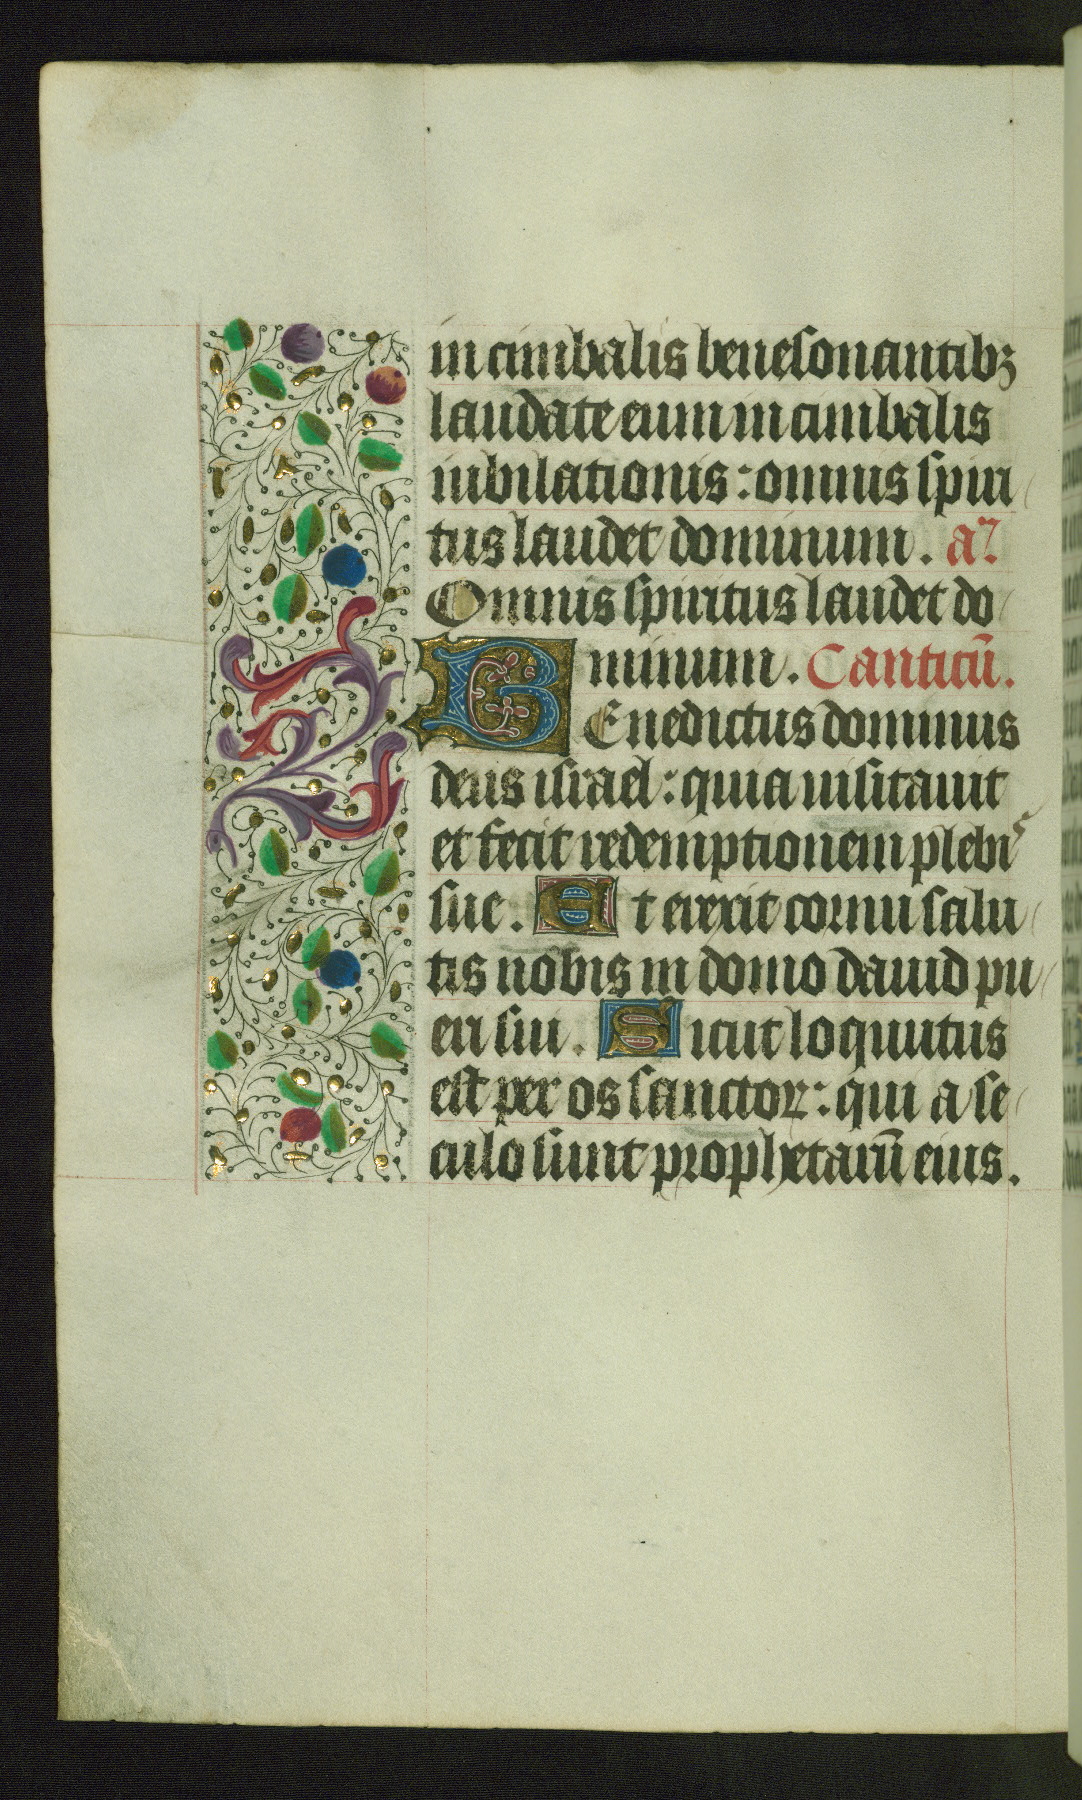 in cimbalis benesonantibꝫ
laudate eum in cimbalis
iubilationis: omnis spiri
tus laudet dominum. a⁊.
Omnis spiritus laudet do
minum. Canticū.
BEnedictus dominus
deus israel: quia uisitauit
et fecit redemptionem plebis
sue. Et erexit cornu salu
tis nobis in domo dauid pu
eri sui. Sicut loquutus
est per os sanctoꝝ: qui a se
culo sunt prophetarū eius.